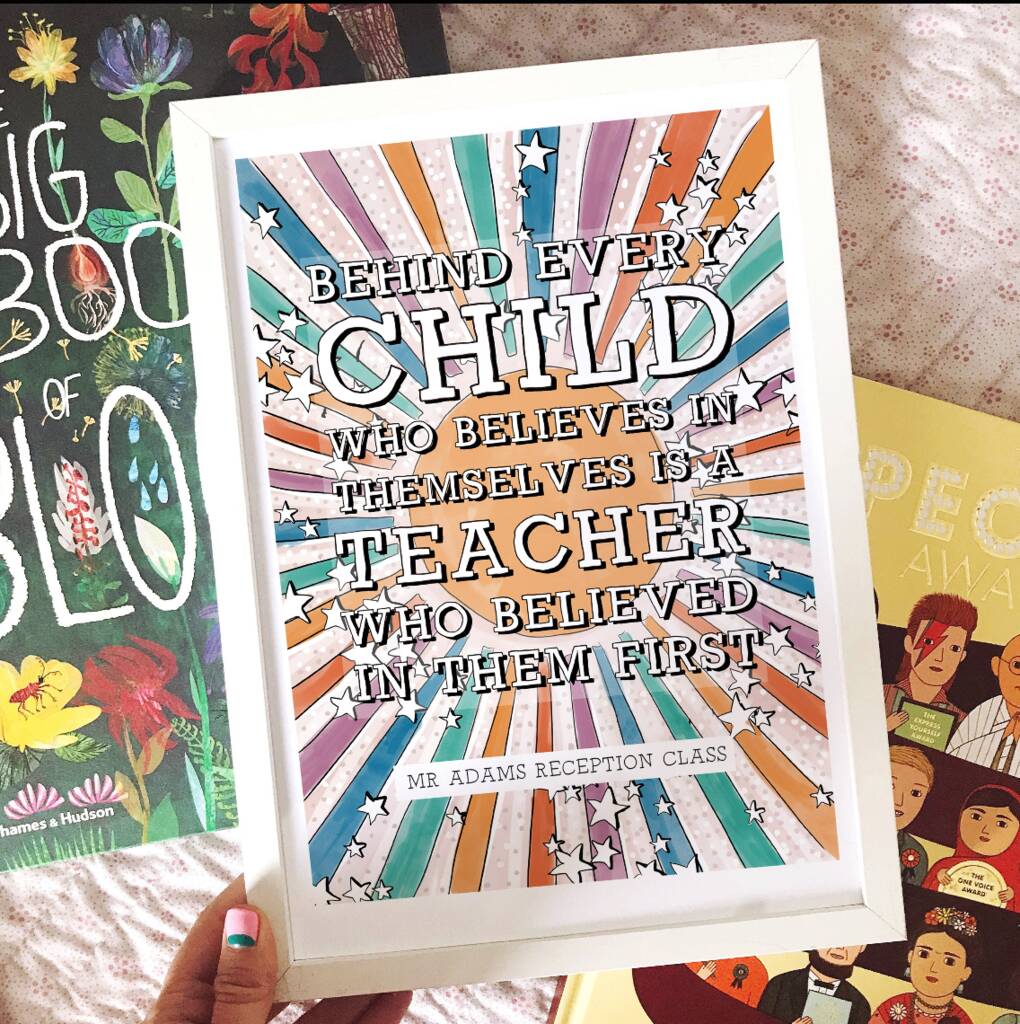 BIG
BOO
OF
BLO
Thames & Hudson
BEHIND EVERY
CHILD
WHO BELIEVES IN
THEMSELVES IS A
TEACHER
WHO BELIEVED
IN THEM FIRST
MR ADAMS RECEPTION CLASS
PEO
AWA
THE
EXPRESS
YOURSELF
AWARD
THE
ONE VOICE
AWARD